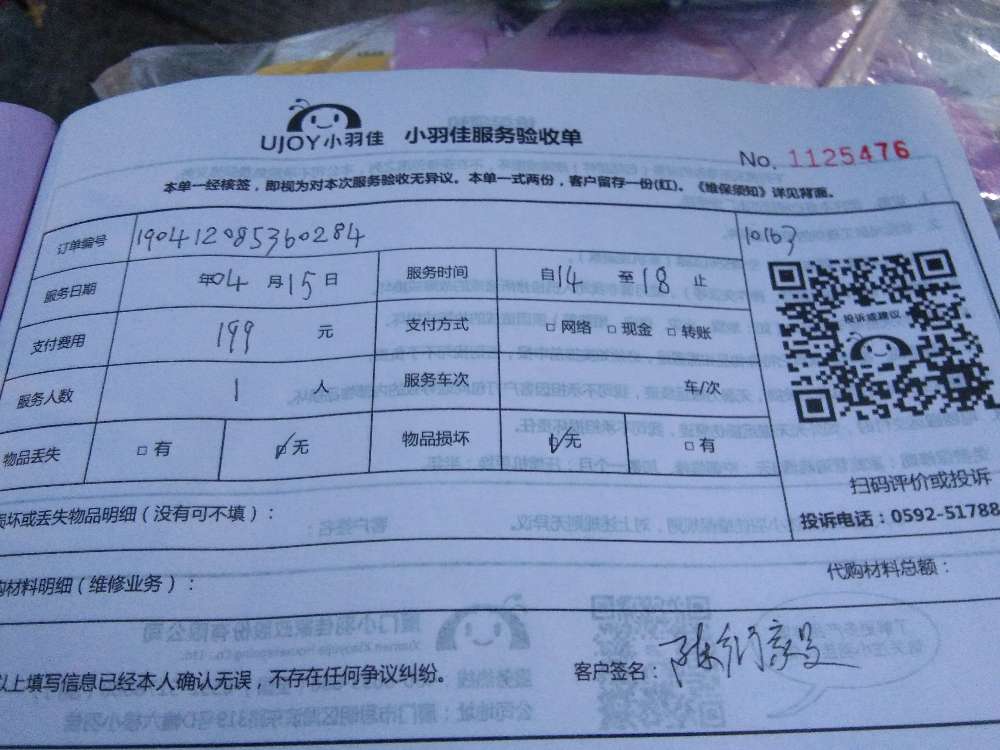 UJOY小羽佳 小羽佳服务验收单
No. 1125476
本单一经核签，即视为对本次服务验收无异议。本单一式两份，客户留存一份(红)。《维保须知》详见背面。
订单编号 190412085360284 10163
服务日期 年04月15日 服务时间 自14至18止
投诉或建议
支付费用 199 元 支付方式 □网络 □现金 □转账
服务人数 1 人 服务车次 车/次
物品丢失 □有 ☑无 物品损坏 ☑无 □有
扫码评价或投诉
投诉电话：0592-51788
损坏或丢失物品明细（没有可不填）：
购材料明细（维修业务）： 代购材料总额：
以上填写信息已经本人确认无误，不存在任何争议纠纷。 客户签名：